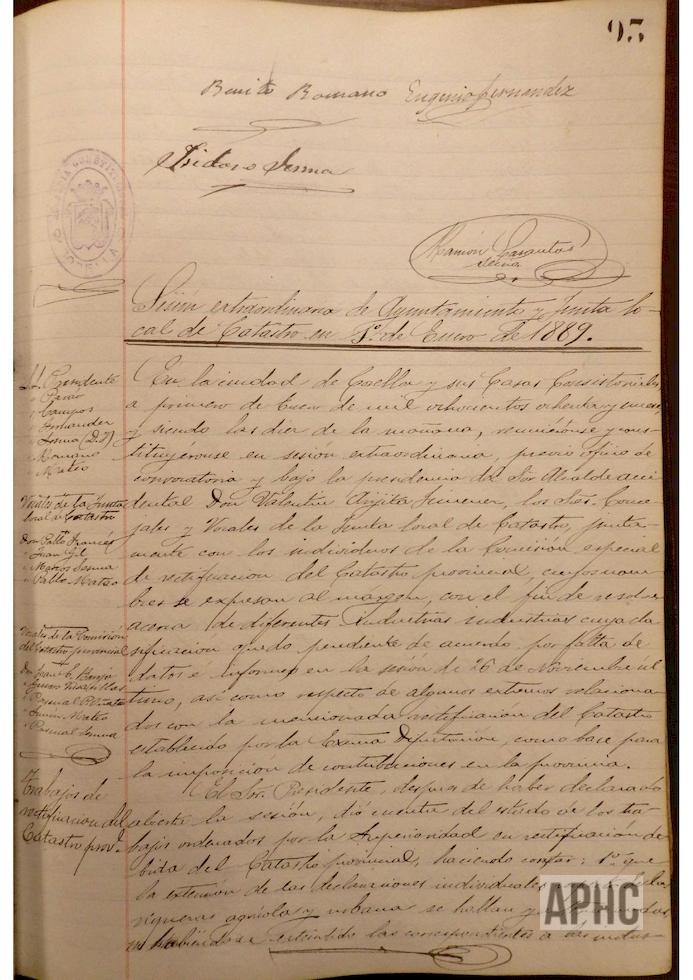 95
Benito Romano Eugenio Fernandez
Isidoro Sesma
ALCALDIA CONSTITUCIONAL CORELLA
Ramón
Srio
Sesión extraordinaria de Ayuntamiento y Junta lo-
cal de Catastro en 1º de Enero de 1889.
S.S. Presidente
"
" Campos
" Fernandez
" Sesma (D. I)
" Romano
" Mateo
Vocales de la Junta
local de Catastro
Don Pablo Francés
" Juan Gil
" Marcos Sesma
" Pablo Mateo
Vocales de la Comisión
del Catastro provincial
Don Juan
"
" Pascual
" Mateo
" Pascual Sesma
Trabajos de
rectificacion del
Catastro provl.
En la ciudad de Corella y sus Casas Consistoriales
a primero de Enero de mil ochocientos ochenta y nueve
y siendo las diez de la mañana, reuniéronse y cons-
tituyeronse en sesión extraordinaria, previo oficio de
convocatoria y bajo la presidencia del Sor Alcalde acci-
dental Don Valentin Jimenez, los Stes. Conce-
jales y Vocales de la Junta local de Catastro, junta-
mente con los individuos de la Comisión especial
de rectificacion del Catastro provincial, cuyos nom-
bres se expresan al margen, con el fin de resolver
acerca de diferentes industrias industrias cuya cla
sificacion quedó pendiente de acuerdo, por falta de
datos e informes en la sesion de 26 de Noviembre ul
timo, así como respecto de algunos extremos relaciona-
dos con la mencionada rectificación del Catastro
establecido por la Exma Diputacion, como base para
la imposicion de contribuciones en la provincia.
El Sor. Presidente, despues de haber declarado
abierta la sesión, dió cuenta del estado de los tra-
bajos ordenados por la Superioridad en rectificacion de-
bida del Catastro provincial, haciendo constar: 1º que
la extension de las declaraciones individuales
riqueras agrícola y urbana se hallan
habiéndose extendido las correspondientes a las indus-
APHC